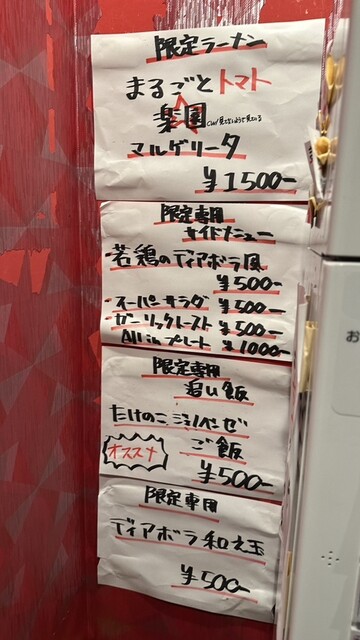 限定ラーメン
まるごとトマト
楽園
マルゲリータ
¥1500-
限定専用
サイドメニュー
若鶏のディアボラ風
¥500-
・スーパーサラダ ¥500-
・ガーリックトースト ¥500-
All in プレート ¥1000-
限定専用
追い飯
たけのこジェノベーゼ
ご飯
オススメ
¥500-
限定専用
ディアボラ和え玉
¥500-
お